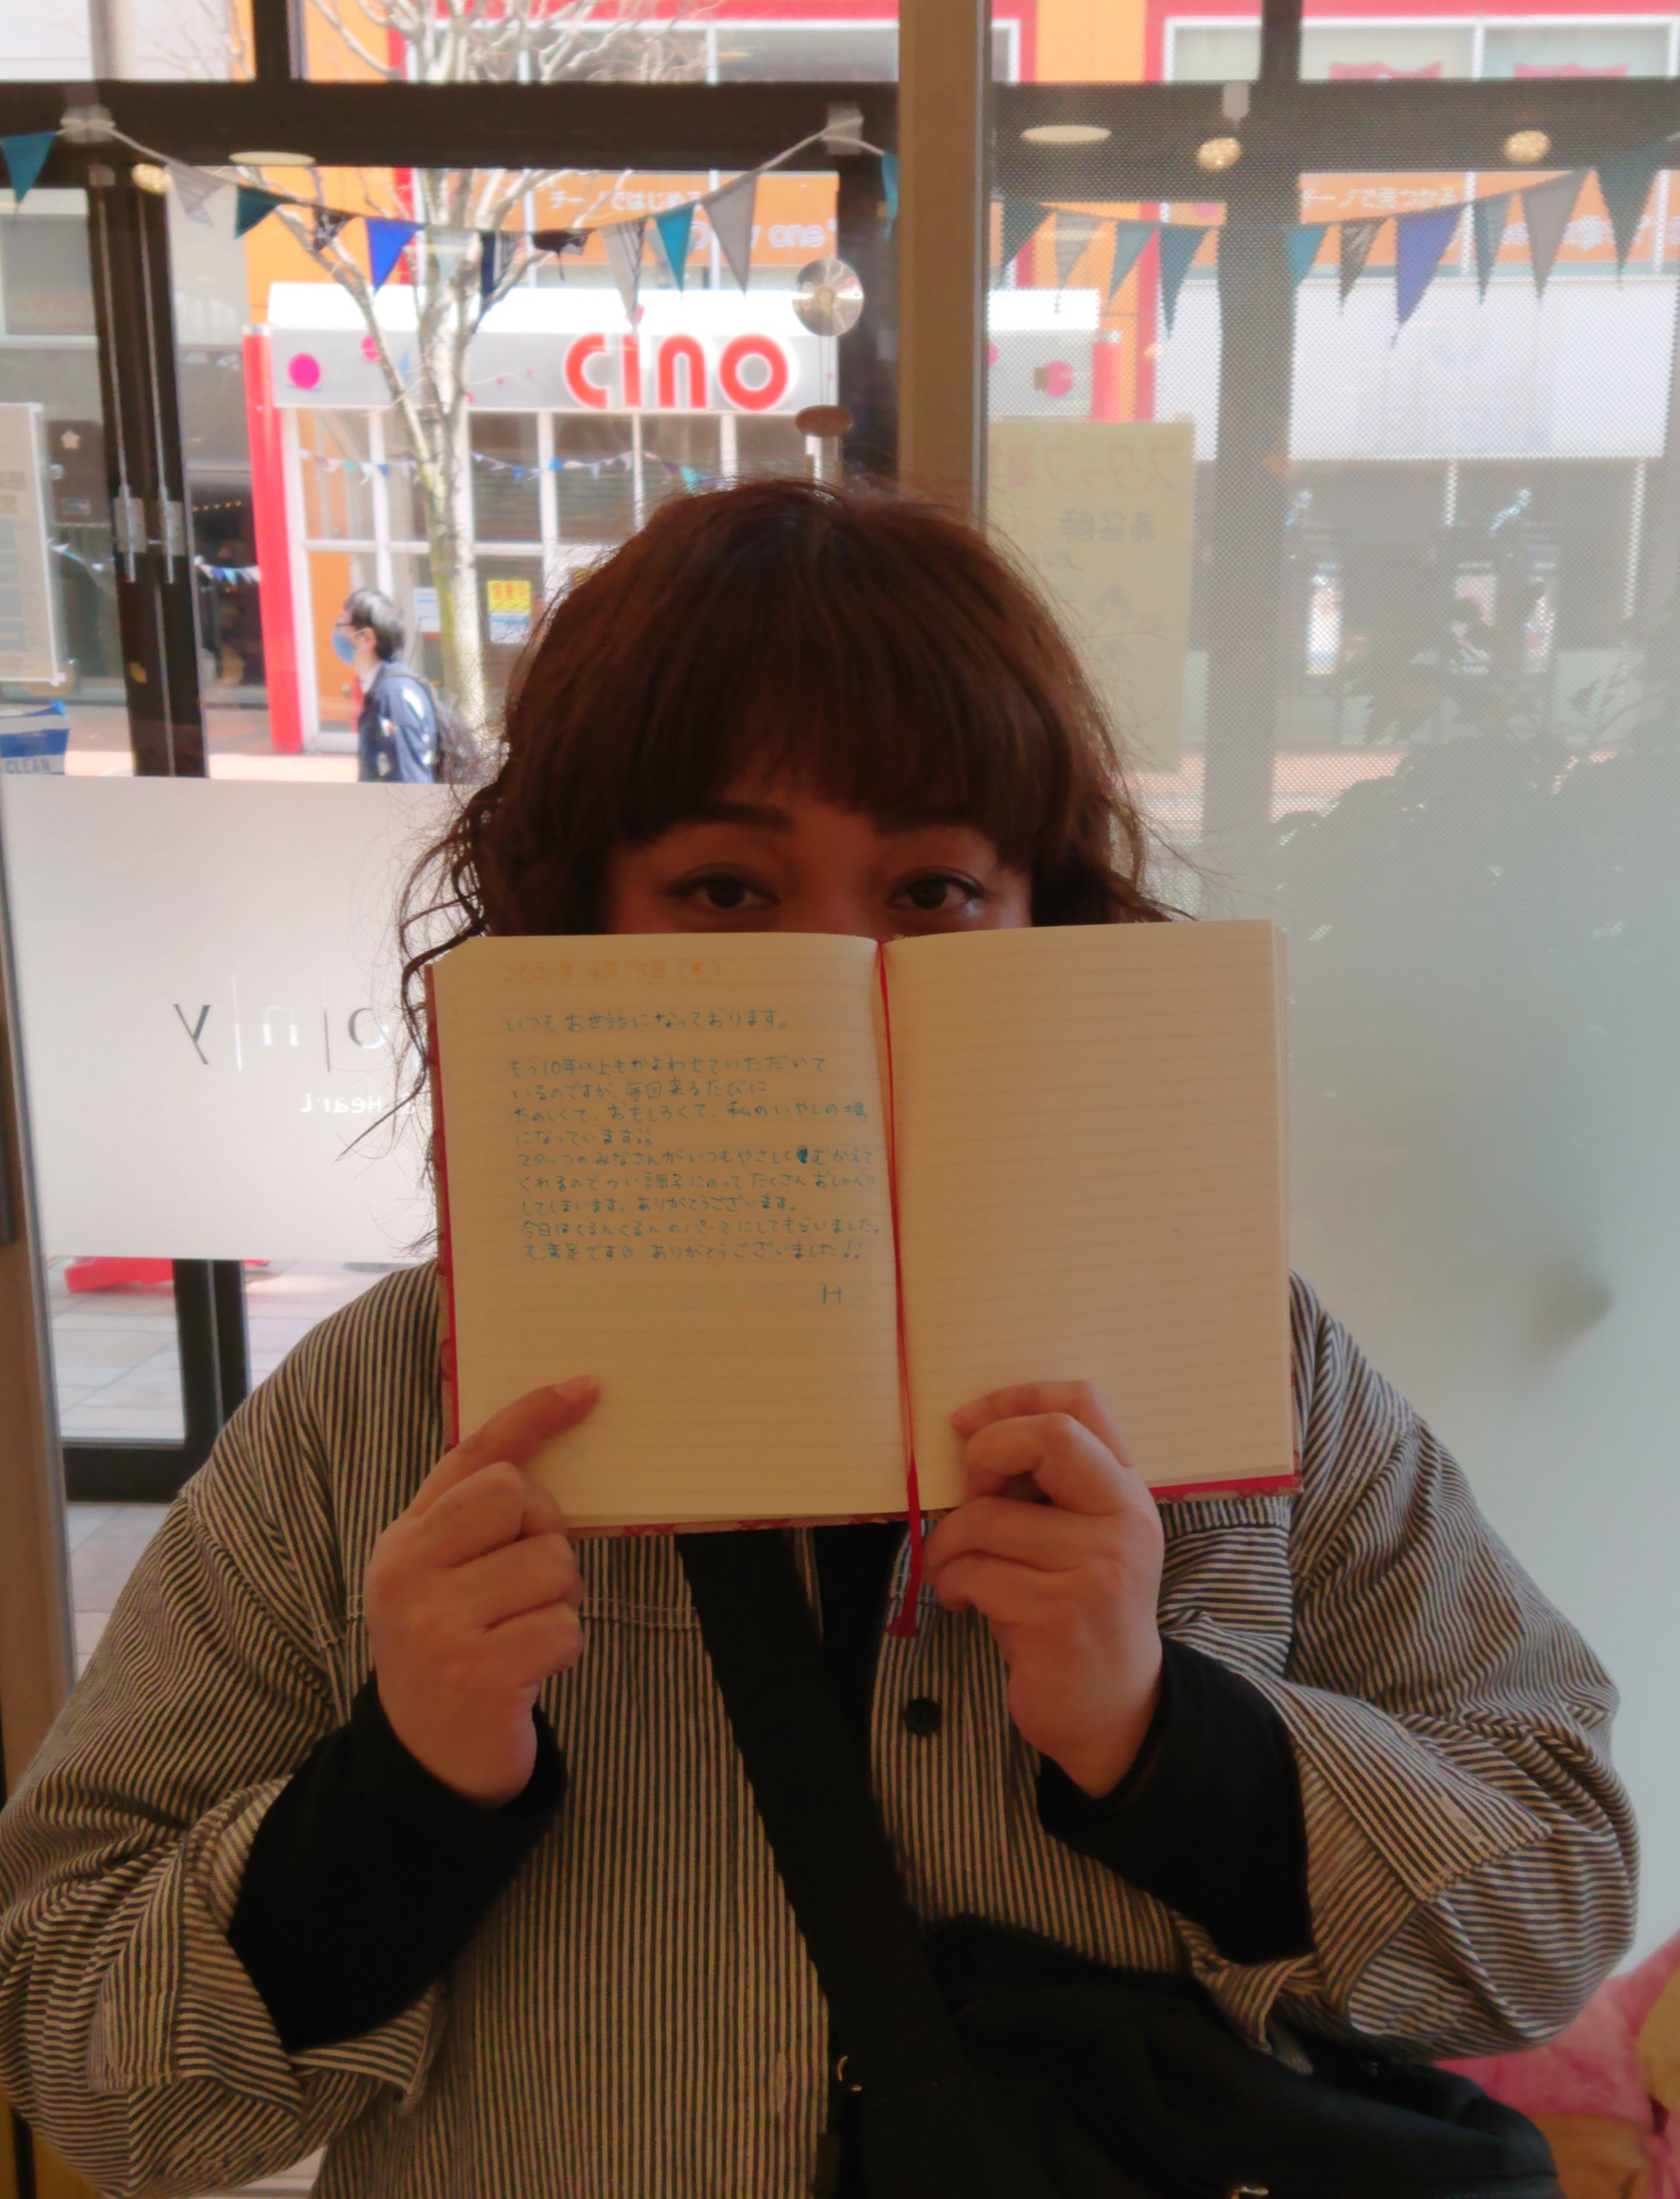 チーノではじめる
チーノで見つかる
cino
CLEAN
スタッフ募
美容師
o|n|y
Heart
2021年4月15日(木)
いつもお世話になっております。
もう10年以上もかよわせていただいて
いるのですが、毎回来るたびに
たのしくて、おもしろくて、私のいやしの場
になっています!!
スタッフのみなさんがいつもやさしくむかえて
くれるのでつい調子にのってたくさんおしゃべり
してしまいます。ありがとうございます。
今日はくるんくるんのパーマにしてもらいました。
大満足です♡ ありがとうございました!!
H